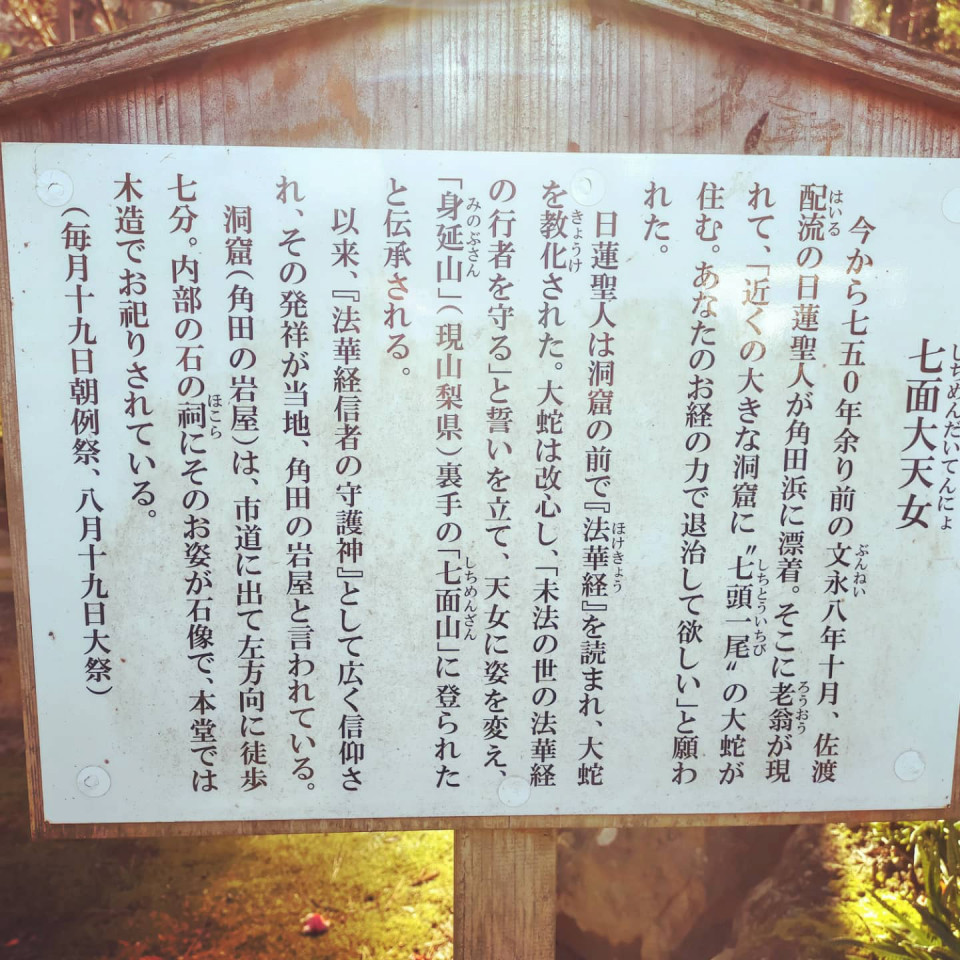 しちめんだいてんにょ
七面大天女
ぶんねい
今から七五０年余り前の文永八年十月、佐渡
はいる ろうおう
配流の日蓮聖人が角田浜に漂着。そこに老翁が現
しちとういちび
れて、「近くの大きな洞窟に〝七頭一尾〟の大蛇が
住む。あなたのお経の力で退治して欲しい」と願わ
れた。
ほけきょう
日蓮聖人は洞窟の前で『法華経』を読まれ、大蛇
きょうけ
を教化された。大蛇は改心し、「未法の世の法華経
の行者を守る」と誓いを立て、天女に姿を変え、
みのぶさん しちめんざん
「身延山」（現山梨県）裏手の「七面山」に登られた
と伝承される。
以来、『法華経信者の守護神』として広く信仰さ
れ、その発祥が当地、角田の岩屋と言われている。
洞窟（角田の岩屋）は、市道に出て左方向に徒歩
ほこら
七分。内部の石の祠にそのお姿が石像で、本堂では
木造でお祀りされている。
（毎月十九日朝例祭、八月十九日大祭）